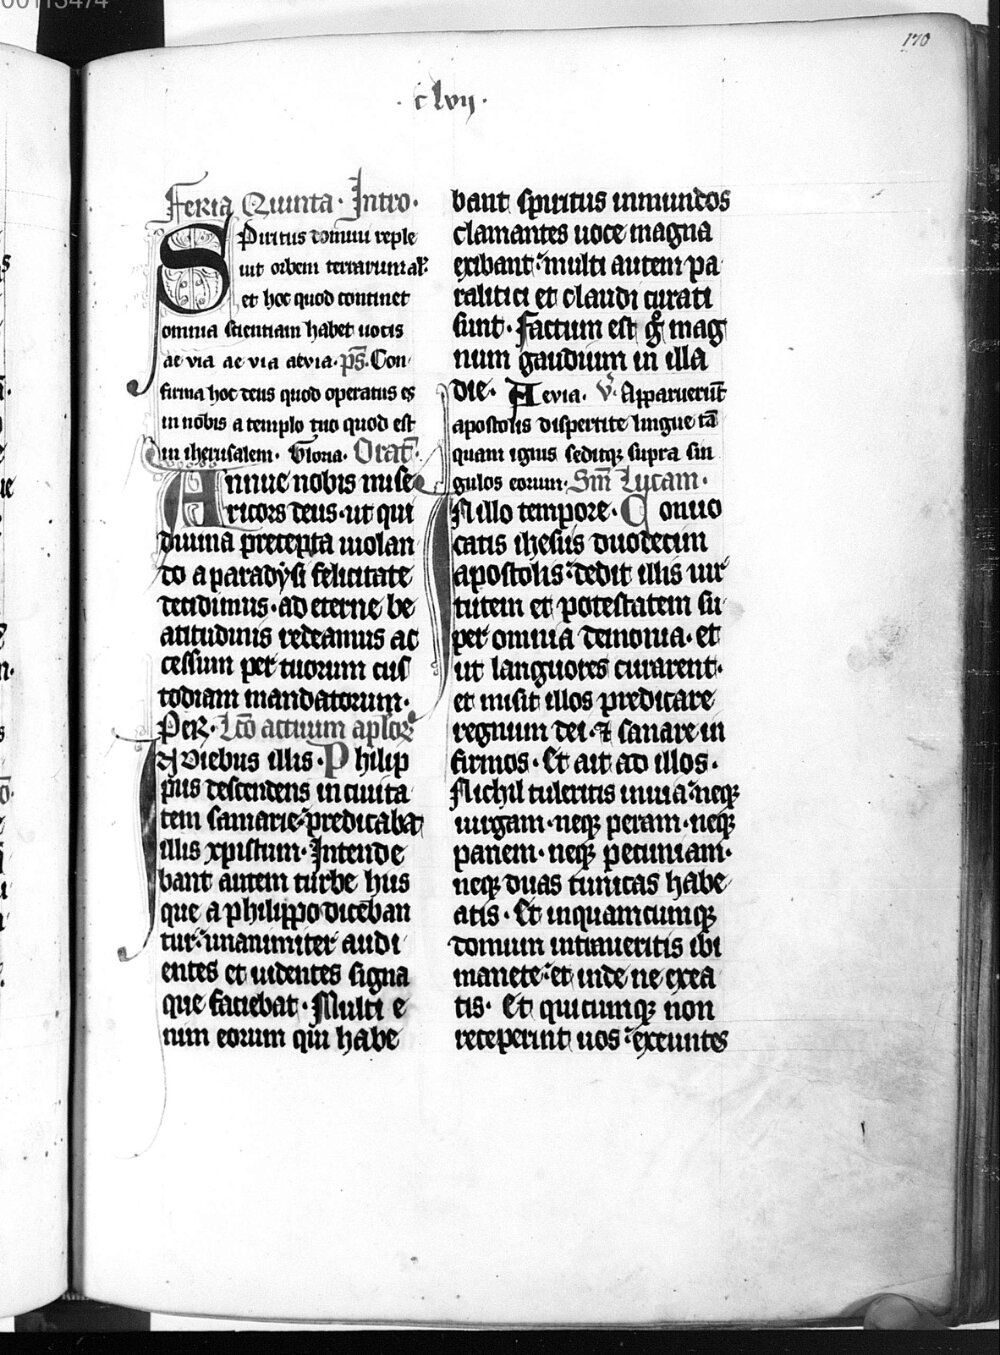 170
·clvij·
Feria Quinta· Intro·
Spiritus domini reple
uit orbem terrarum aƚa
et hoc quod continet
omnia scientiam habet uocis
ae via ae via aevia· p̄s· Con
firma hoc deus quod operatus es
in nobis a templo tuo quod est
in iherusalem· Gloria· Orat̄
Annue nobis mise
ricors deus· ut qui
diuina precepta uiolan
do a paradysi felicitate
decidimus· ad eterne be
atitudinis redeamus ac
cessum per tuorum cus
todiam mandatorum·
Per· Lc̄o actuum aplor̄
In Diebus illis· Philip
pus descendens in ciuita
tem samarie· predicabat
illis xpistum· Intende
bant autem turbe hiis
que a philippo diceban
tur· unanimiter audi
entes et uidentes signa
que faciebat· Multi e
nim eorum qui habe
bant spiritus inmundos
clamantes uoce magna
exibant· multi autem pa
ralitici et claudi curati
sunt· Factum est g̊ mag
num gaudium in illa
die· Aevia· v̓ Apparuerūt
apostolis dispertite lingue tā
quam ignis seditqꝫ supra sin
gulos eorum· Sm̄ Lucam·
In illo tempore· Conuo
catis ihesus duodecim
apostolis· dedit illis uir
tutem et potestatem su
per omnia demonia· et
ut languores curarent·
et misit illos predicare
regnum dei· ⁊ sanare in
firmos· Et ait ad illos·
Nichil tuleritis in uia· neqꝫ
uirgam· neqꝫ peram· neqꝫ
panem· neqꝫ pecuniam·
neqꝫ duas tunicas habe
atis· Et in quamcumqꝫ
domum intraueritis ibi
manete· et inde ne exea
tis· Et quicumqꝫ non
receperint uos· exeuntes